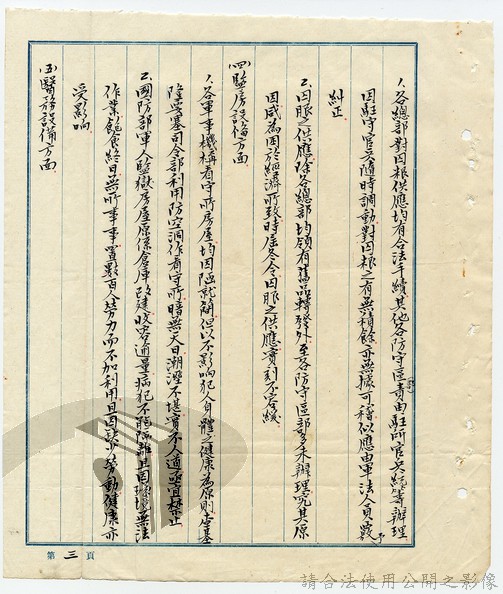 1.各總部對囚糧供應均有合法手續其他各防守區責由駐所官兵統籌辦理
因駐守官兵隨時調動對囚糧之有無積餘亦無據可稽似應由軍法人員嚴予
糾正
2.囚服之供應除各總部均領有舊品轉發外至各防守區部多未辦理究其原
因咸為困於經濟所致時屆冬令囚服之供應實刻不容緩
(四)監房設備方面
1.各軍事機構看守所房屋均因陋就簡但以不影響犯人身體之健康為原則查基
隆要塞司令部利用防空洞作看守所暗無天日潮溼不堪實不人道亟宜禁止
2.國防部軍人監獄房屋原係倉庫改建收容過量病犯不能隔離且因環境無法
作業飽食終日無所事事置數百人勞力而不加利用且因缺少勞動健康亦
受影響
(五)醫務設備方面
第三頁
請合法使用公開之影像